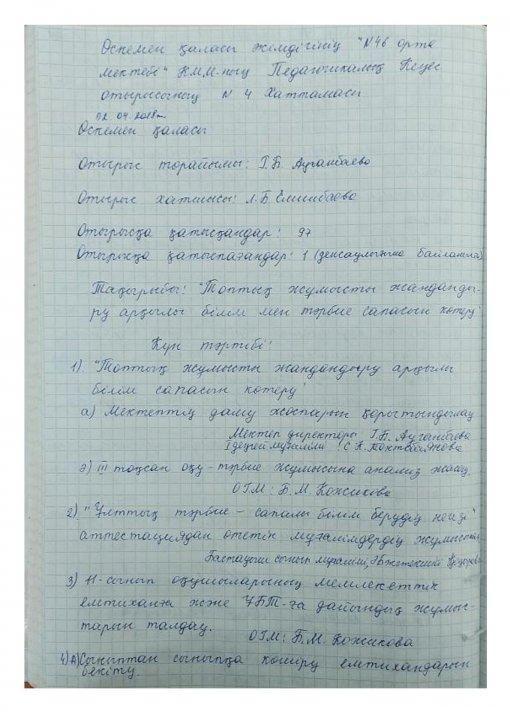 Өскемен қаласы әкімдігінің "№46 орта
мектебі" КММ-ның Педагогикалық Кеңес
отырысының №4 Хаттамасы
02 04 2018ж
Өскемен қаласы
Отырыс төрайымы: Г.Б. Ауганбаева
Отырыс хатшысы: Л.Б Еминбаева
Отырысқа қатысқандар: 97
Отырысқа қатыспағандар: 1 (денсаулығына байланысты)
Тақырыбы: "Топтық жұмысты жанданды-
ру арқылы білім мен тәрбие сапасын көтеру"
Күн тәртібі:
1). "Топтық жұмысты жандандыру арқылы
білім сапасын көтеру"
а) Мектептің даму жоспарын қорытындылау
Мектеп директоры Г.Б. Ауганбаева
мұғалімі С.К.
ә) III тоқсан оқу-тәрбие жұмысына анализ жасау
ОІМ: Б.М. Кожикова
2) "Ұлттық тәрбие - сапалы білім берудің негізі"
аттестациядан өтетін мұғалімдердің жұмысы
Бастауыш сынып мұғалімі,
3) 11-сынып оқушыларының мемлекеттік
емтиханға және ҰБТ-ға дайындық жұмыс-
тарын талдау.
ОІМ: Б.М. Кожикова
4) А) Сыныптан сыныпқа көшіру емтихандарын
бекіту.